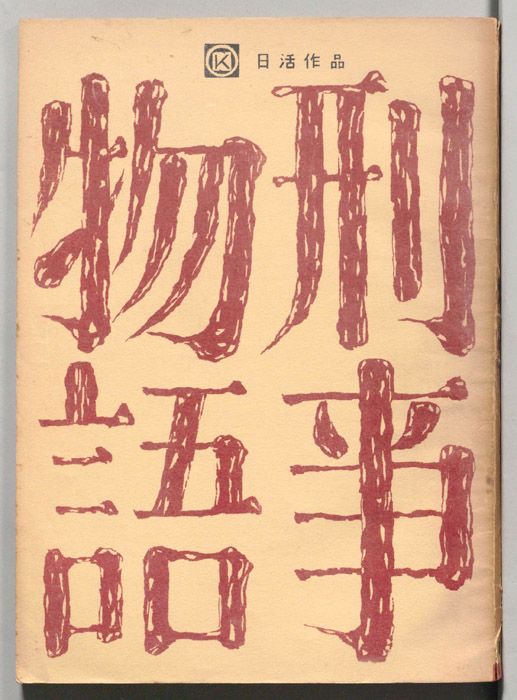 日活作品
刑事
物語